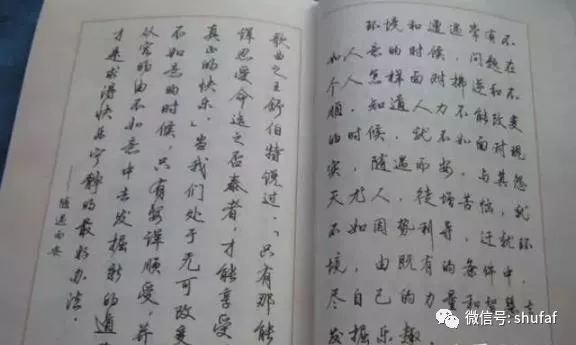 环境和遭遇常有不
如人意的时候，问题在
个人怎样面对拂逆和不
顺。知道人力不能改变
的时候，就不如面对现
实，随遇而安。与其怨
天尤人，徒增苦恼，就
不如因势利导，迁就环
境，由既有的条件中，
尽自己的力量和智慧去
发掘乐趣。
歌曲之王舒伯特说过：「只有那能
详忍受命运之否泰者，才能享受
真正的快乐。」当我们处于无可改变
不如意的时候，只有安详顺受，并
从容的由不如意中去发掘新的道
才是求得快乐宁静的最好办法。
——随遇而安
微信号: shufaf